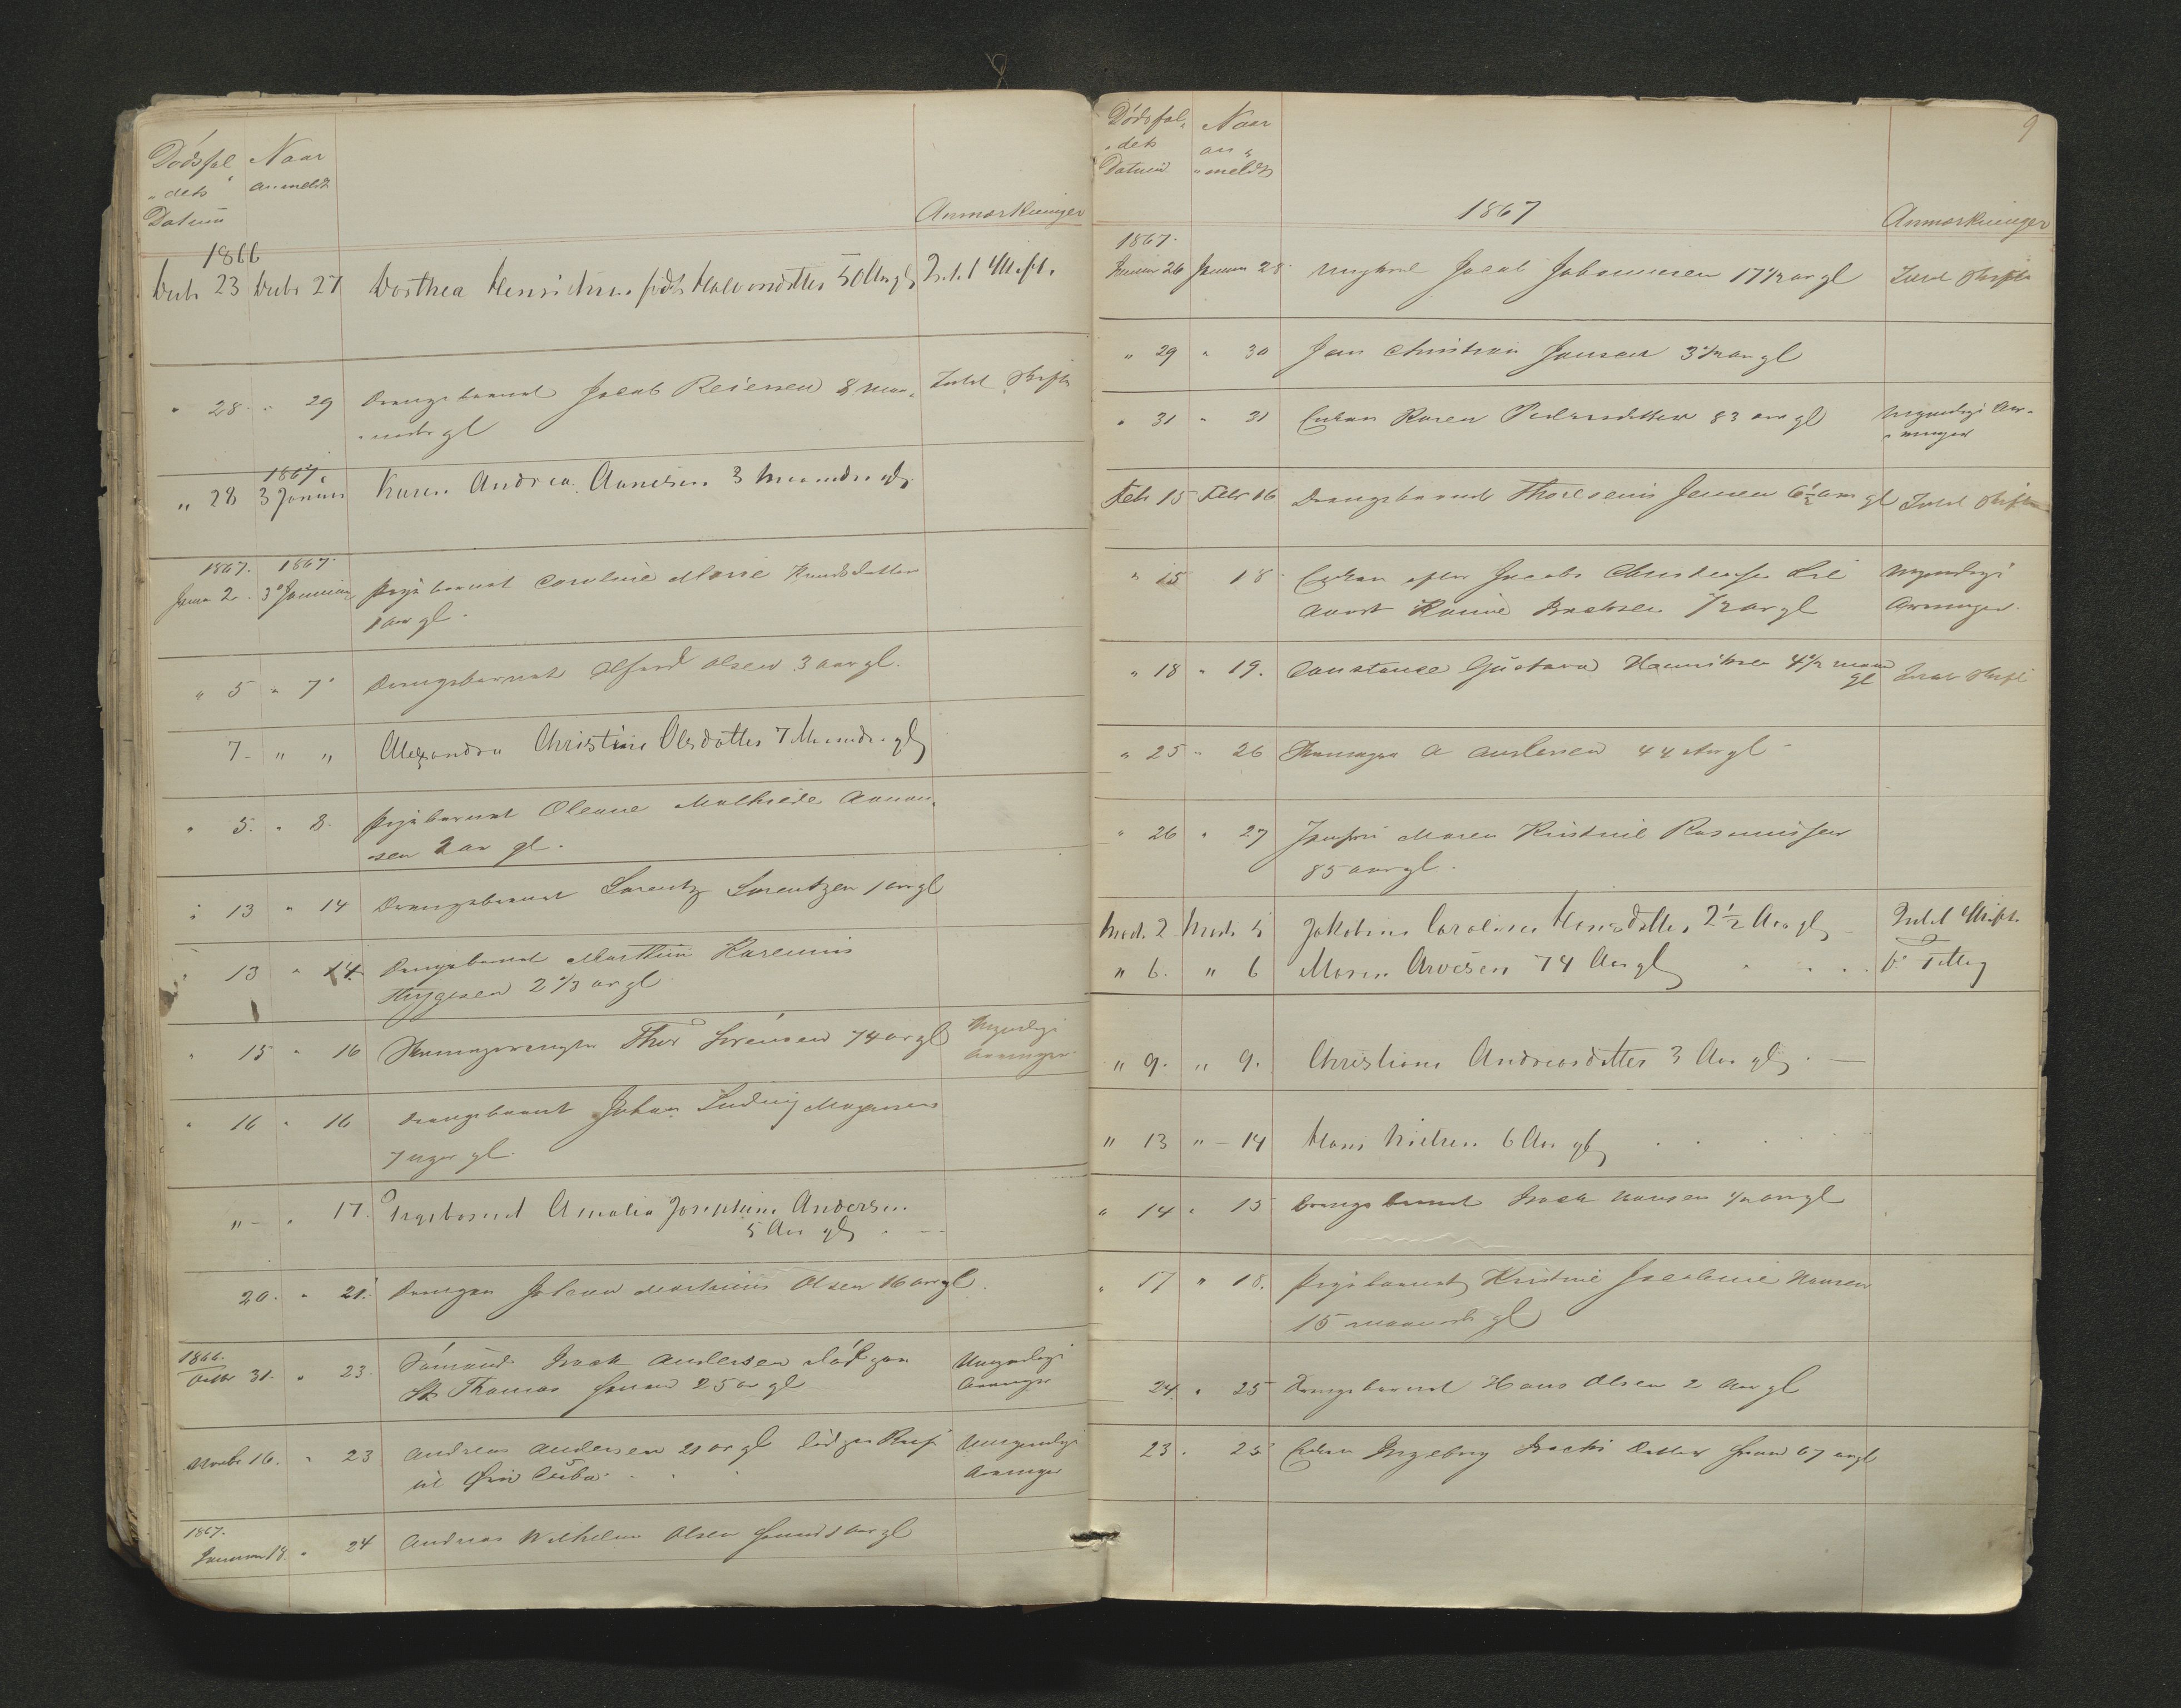 Dödsfal
"dets
Datum
Naar
anmeldt
Anmærkninger
1866
Decbr 23 Decbr 27 Dorthea Henrichsen født Halvorsdatter 50 Aar gl Intet Skifte
" 28 " 29 Drengebarnet Jacob Reiersen 8 maa-
neder gl
Intet Skifte
1867.
" 28 3 Januar Karen Andrea Aanesen 3 Maaneder gl.
1867. 1867.
Janua 2. 3 Januar Pigebarnet Caroline Marie Knudsdatter
1 aar gl.
" 5 " 7 Drengebarnet Alfred Olsen 3 aar gl.
7 - " " Alexandra Christine Olsdatter 7 Maander gl
" 5. " 8. Pigebarnet Oleane Mathilde Aanon-
sen 2 aar gl.
" 13 " 14 Drengebarnet Lorentz Lorentzen 1 aar gl
" 13 " 14 Drengebarnet Marthin Karenius
Thygesen 2 1/3 aar gl
" 15 " 16 Thor Sørensen 74 aar gl Myndige
Arvinger
" 16 " 16 Drengebarnet Johan Ludvig Mogensen
7 uger gl.
" - " 17. Pigebarnet Amalia Josephine Andersen
5 Aar gl
20. " 21. Drengen Johan Martinius Olsen 16 aar gl.
1866.
Octbr 31. " 23. Sømand Isach Andersen død paa
St Thomas 25 aar gl
Umyndige
Arvinger
Novbr 16. " 23 Andreas Andersen 21 aar gl død paa Reise
til Øen Cuba
Umyndige
Arvinger
1867.
Januar 18. " 24 Andreas Wilhelm Olsen 1 aar gl
9
Dödsfal-
"dets
Datum
Naar
an-
"meldt
1867
Anmærkninger
1867.
Januar 26 Januar 28 Ungkarl Jacob Johannesen 17 1/2 aar gl Intet Skifte
" 29 " 30 Jens Christian Jensen 3 1/2 aar gl
" 31 " 31 Enken Karen Pedersdatter 83 aar gl Myndige Ar-
"vinger
Febr 15 Febr 16 Drengebarnet Thoresenius Jensen 6 1/2 aar gl Intet Skifte
" 15 18 Enken efter Jacob Christensen
aar gl
Myndige
Arvinger.
" 18 " 19. Constance Gustava Henriksen 4 1/2 maan
gl
Intet Skifte
" 25 " 26 A Andersen 44 Aar gl
" 26 " 27 Jomfru Maren Kristine Rasmussen
85 aar gl.
Marts 2 Marts 5 Jakobine Caroline Hansdatter 2 1/2 Aar gl Intet Skifte
" 6. " 6 Maren Arvesen 74 Aar gl
" 9. " 9. Christiane Andreasdatter 3 Aar gl. —
" 13 " - 14 Hans Nielsen 6 Aar gl
" 14 " 15 Drengebarnet Isach Hansen 1/2 aar gl
" 17 " 18. Pigebarnet Kristine Jacobine Hansen
15 maaneder gl
24. " 25 Drengebarnet Hans Olsen 2 Aar gl
23. 25 Enken Ingeborg Isachs Datter 67 aar gl